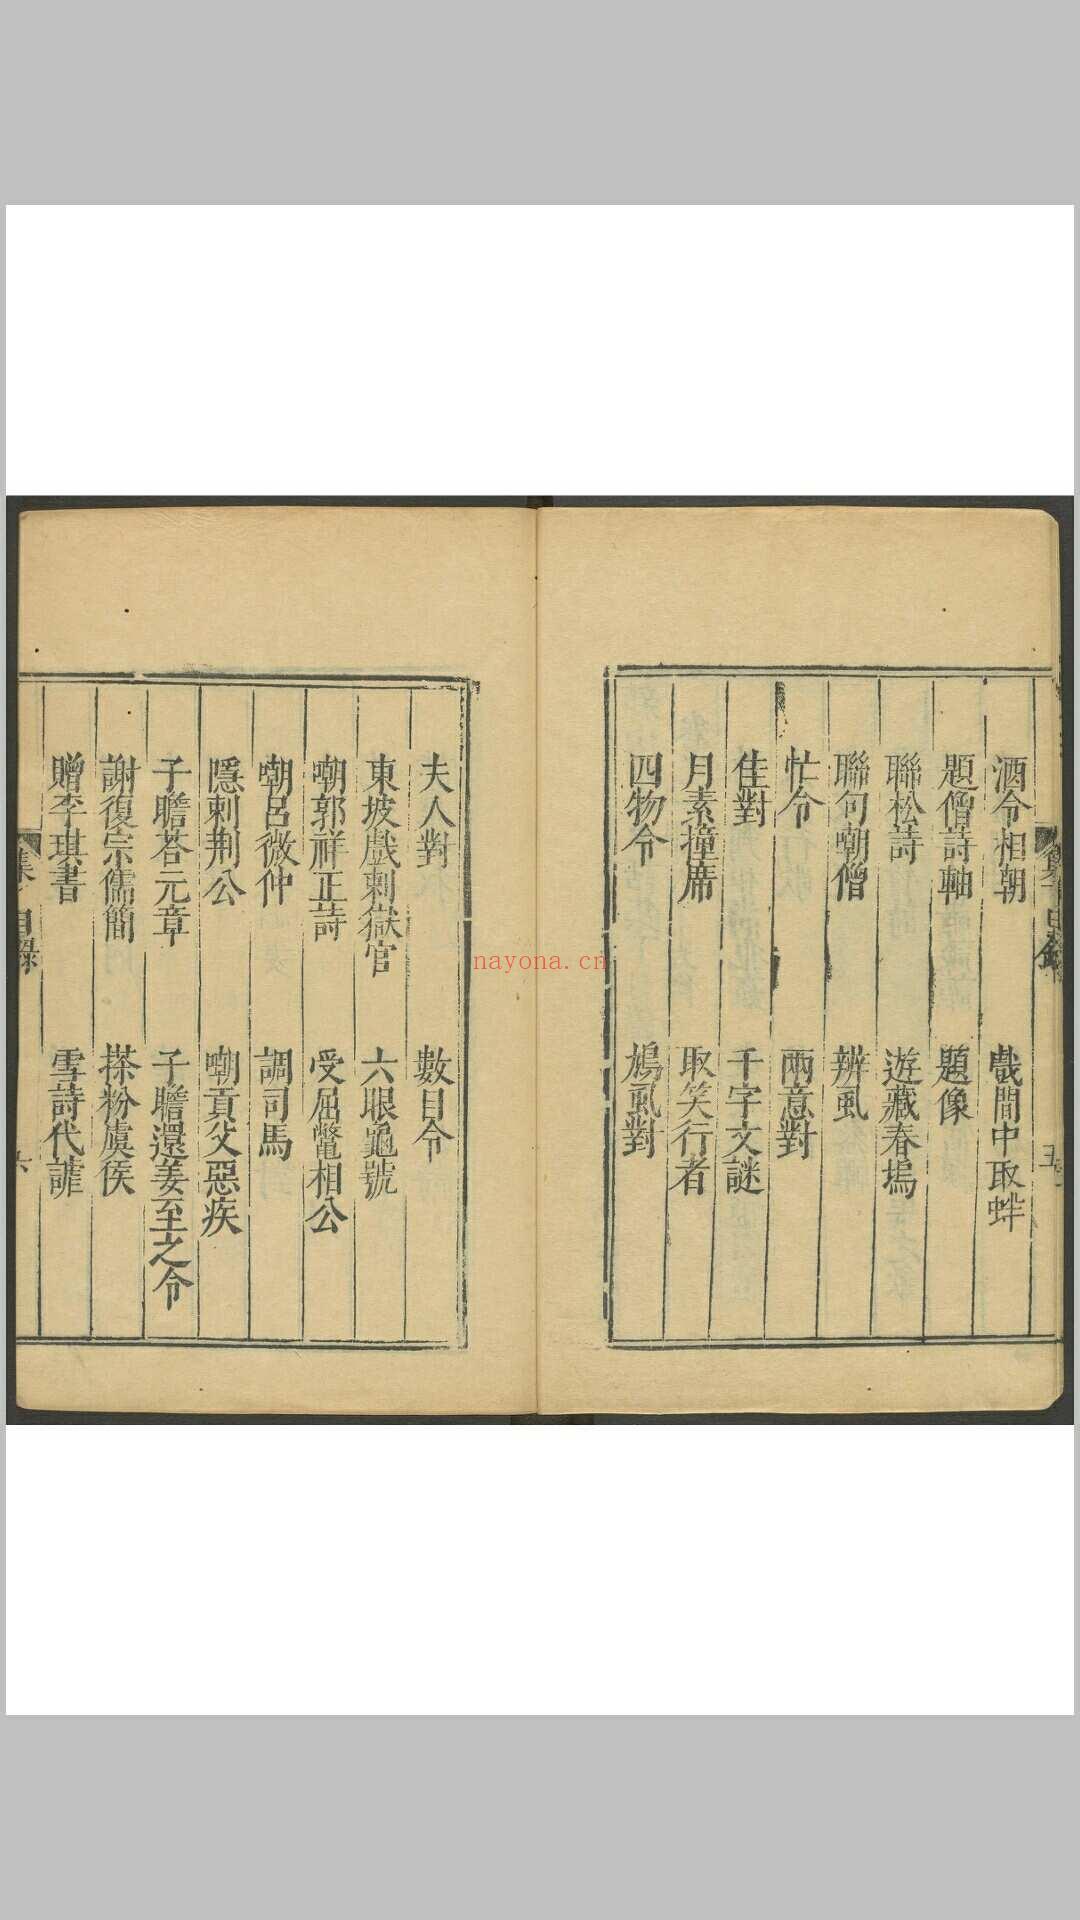 酒令相嘲
戲間中取蚌
題僧詩軸
題像
聯松詩
遊藏春塢
聯句嘲僧
辨虱
忙令
兩意對
佳對
千字文謎
月素撞席
取笑行者
四物令
鳩虱對
五
夫人對
數目令
東坡戲剌獄官
六眼龜號
嘲郭祥正詩
受屈鼈相公
嘲呂微仲
調司馬
隱剌荆公
嘲貢父惡疾
子瞻荅元章
子瞻還姜至之令
謝復宗儒簡
搽粉虞侯
贈李琪書
雪詩代謔
目錄
六
nayona.cn